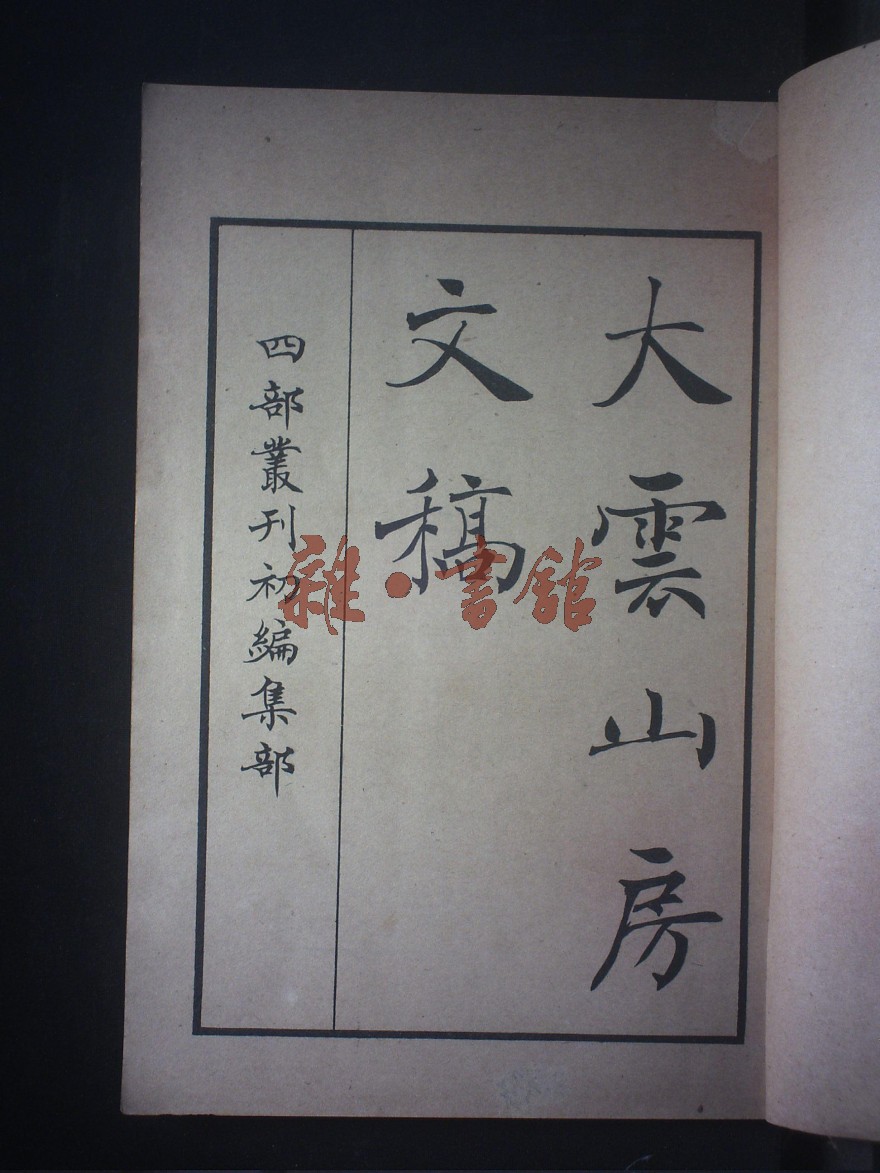 大雲山房
文稿
四部叢刊初編集部
雜·書館